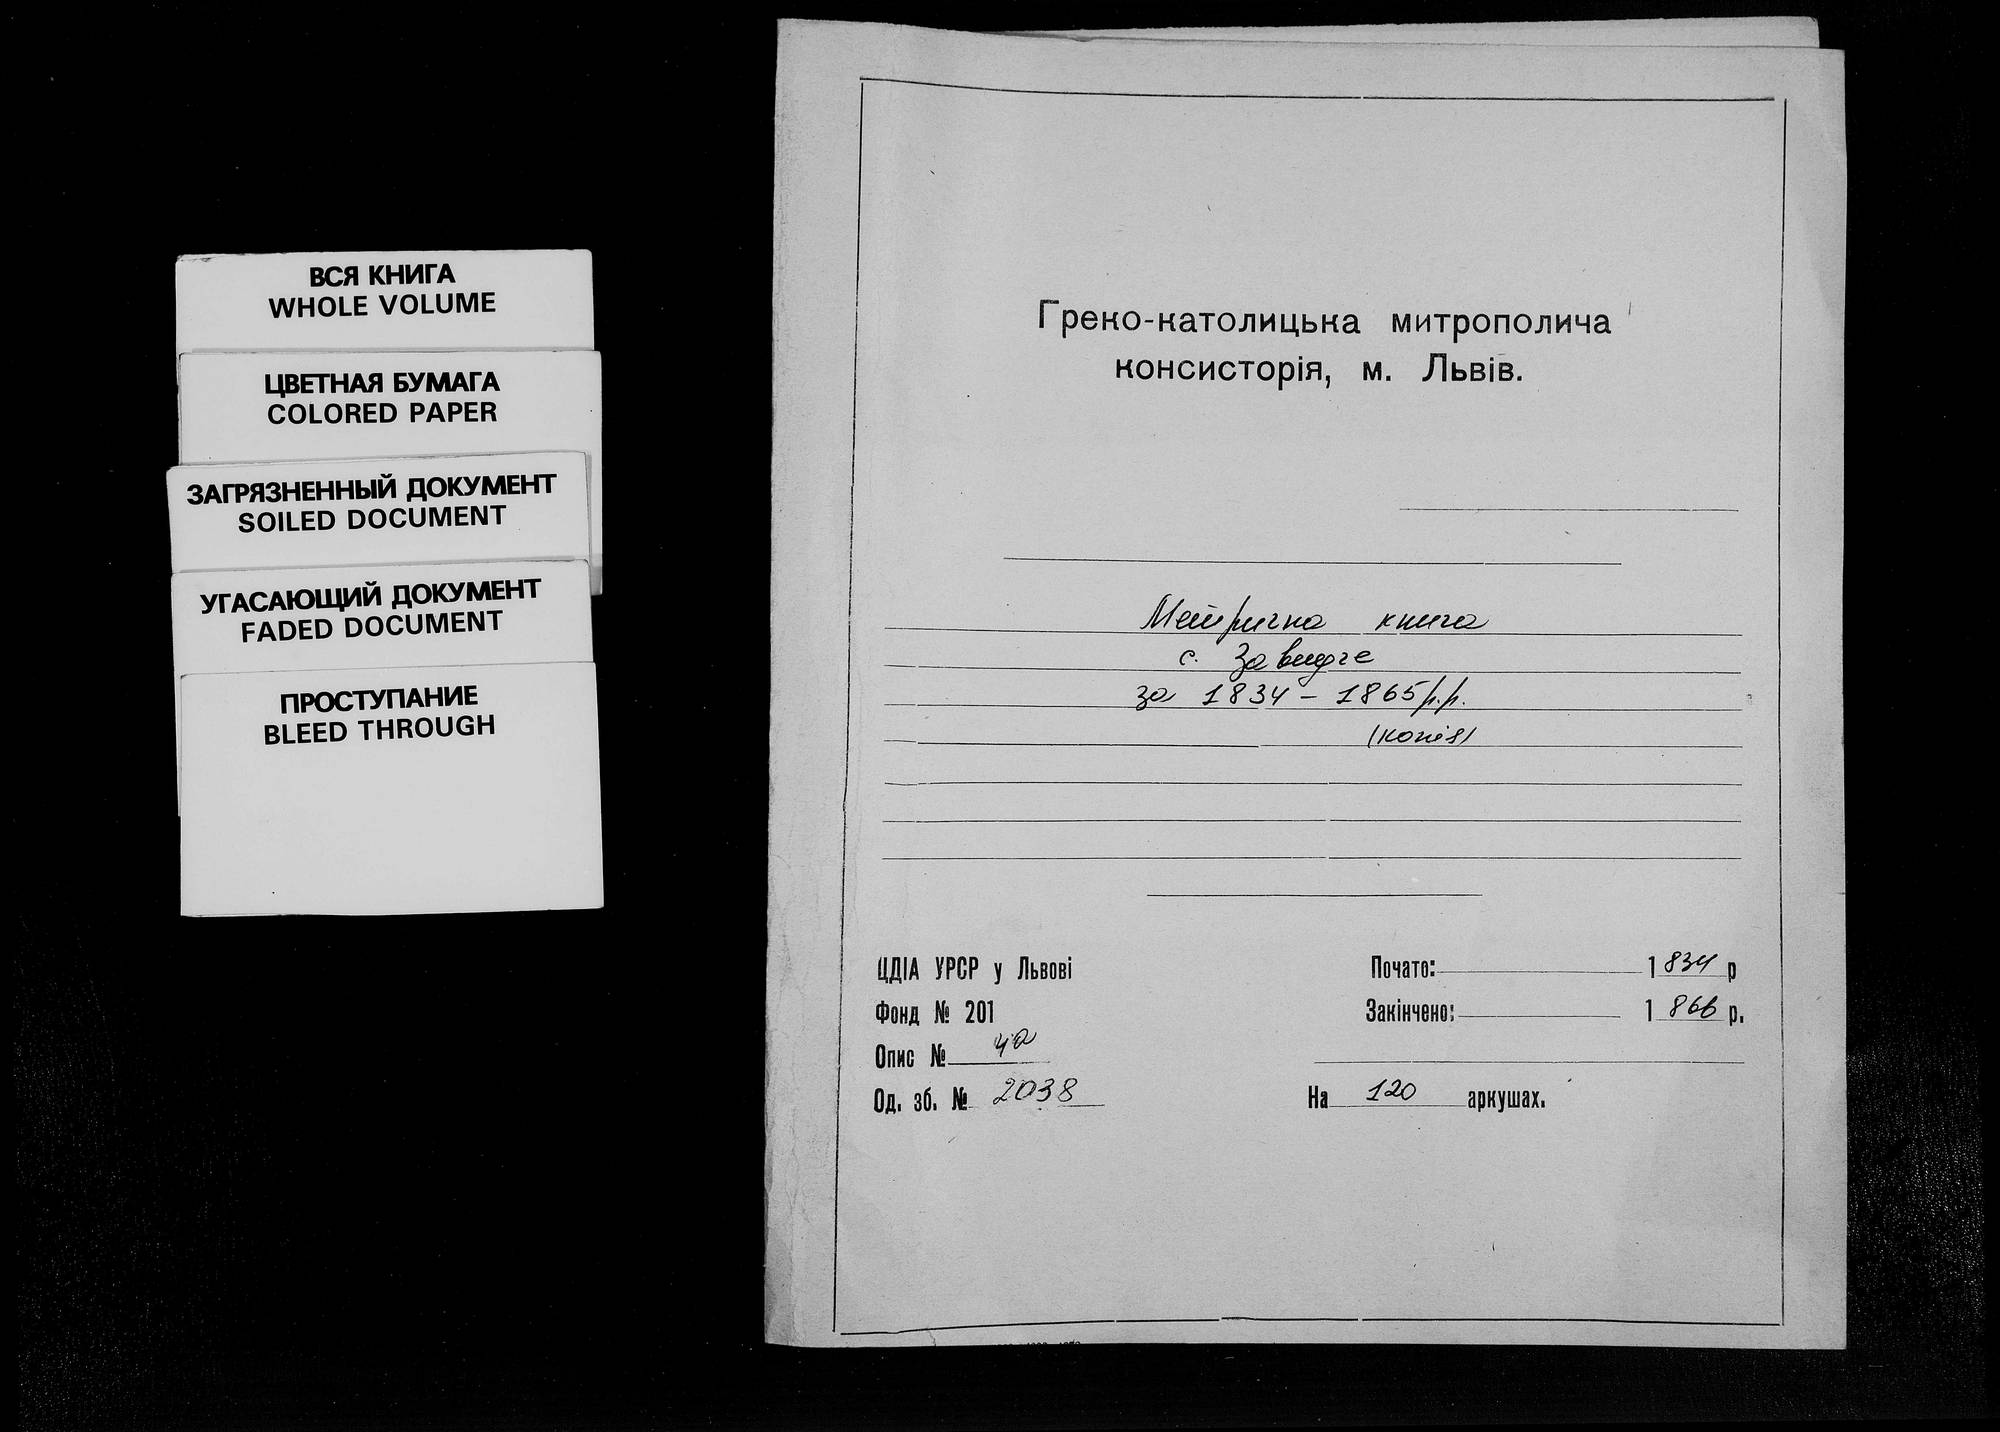 ВСЯ КНИГА
WHOLE VOLUME
ЦВЕТНАЯ БУМАГА
COLORED PAPER
ЗАГРЯЗНЕННЫЙ ДОКУМЕНТ
SOILED DOCUMENT
УГАСАЮЩИЙ ДОКУМЕНТ
FADED DOCUMENT
ПРОСТУПАНИЕ
BLEED THROUGH
Греко-католицька митрополича
консисторія, м. Львів.
Метрична книга
с. Завидче
за 1834 - 1865 р.р.
(копія)
ЦДІА УРСР у Львові
Фонд № 201
Опис № 4а
Од. зб. № 2038
Почато: 1834 р
Закінчено: 1866 р.
На 120 аркушах.